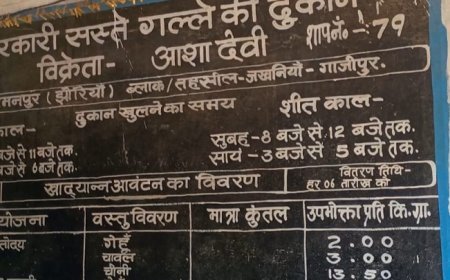 रकारी सस्ते गल्ले की दुकान
विक्रेता- आशा देवी शाप नं०-79
मनपुर (झोरियाँ) ब्लाक/तहसील-जखनियाँ-गाजीपुर.
दुकान खुलने का समय
काल- शीत काल-
बजे से 11 बजे तक. सुबह-8 बजे से 12 बजे तक.
बजे से 6 बजे तक. सायं-3 बजे से 5 बजे तक.
खाद्यान्न आवंटन का विवरण वितरण तिथि-
हर 06 तारीख को
योजना वस्तु विवरण मात्रा कुंतल उपभोक्ता प्रति कि.ग्रा.
त्योदय गेहूँ 2.00
चावल 3.00
चीनी 13.50